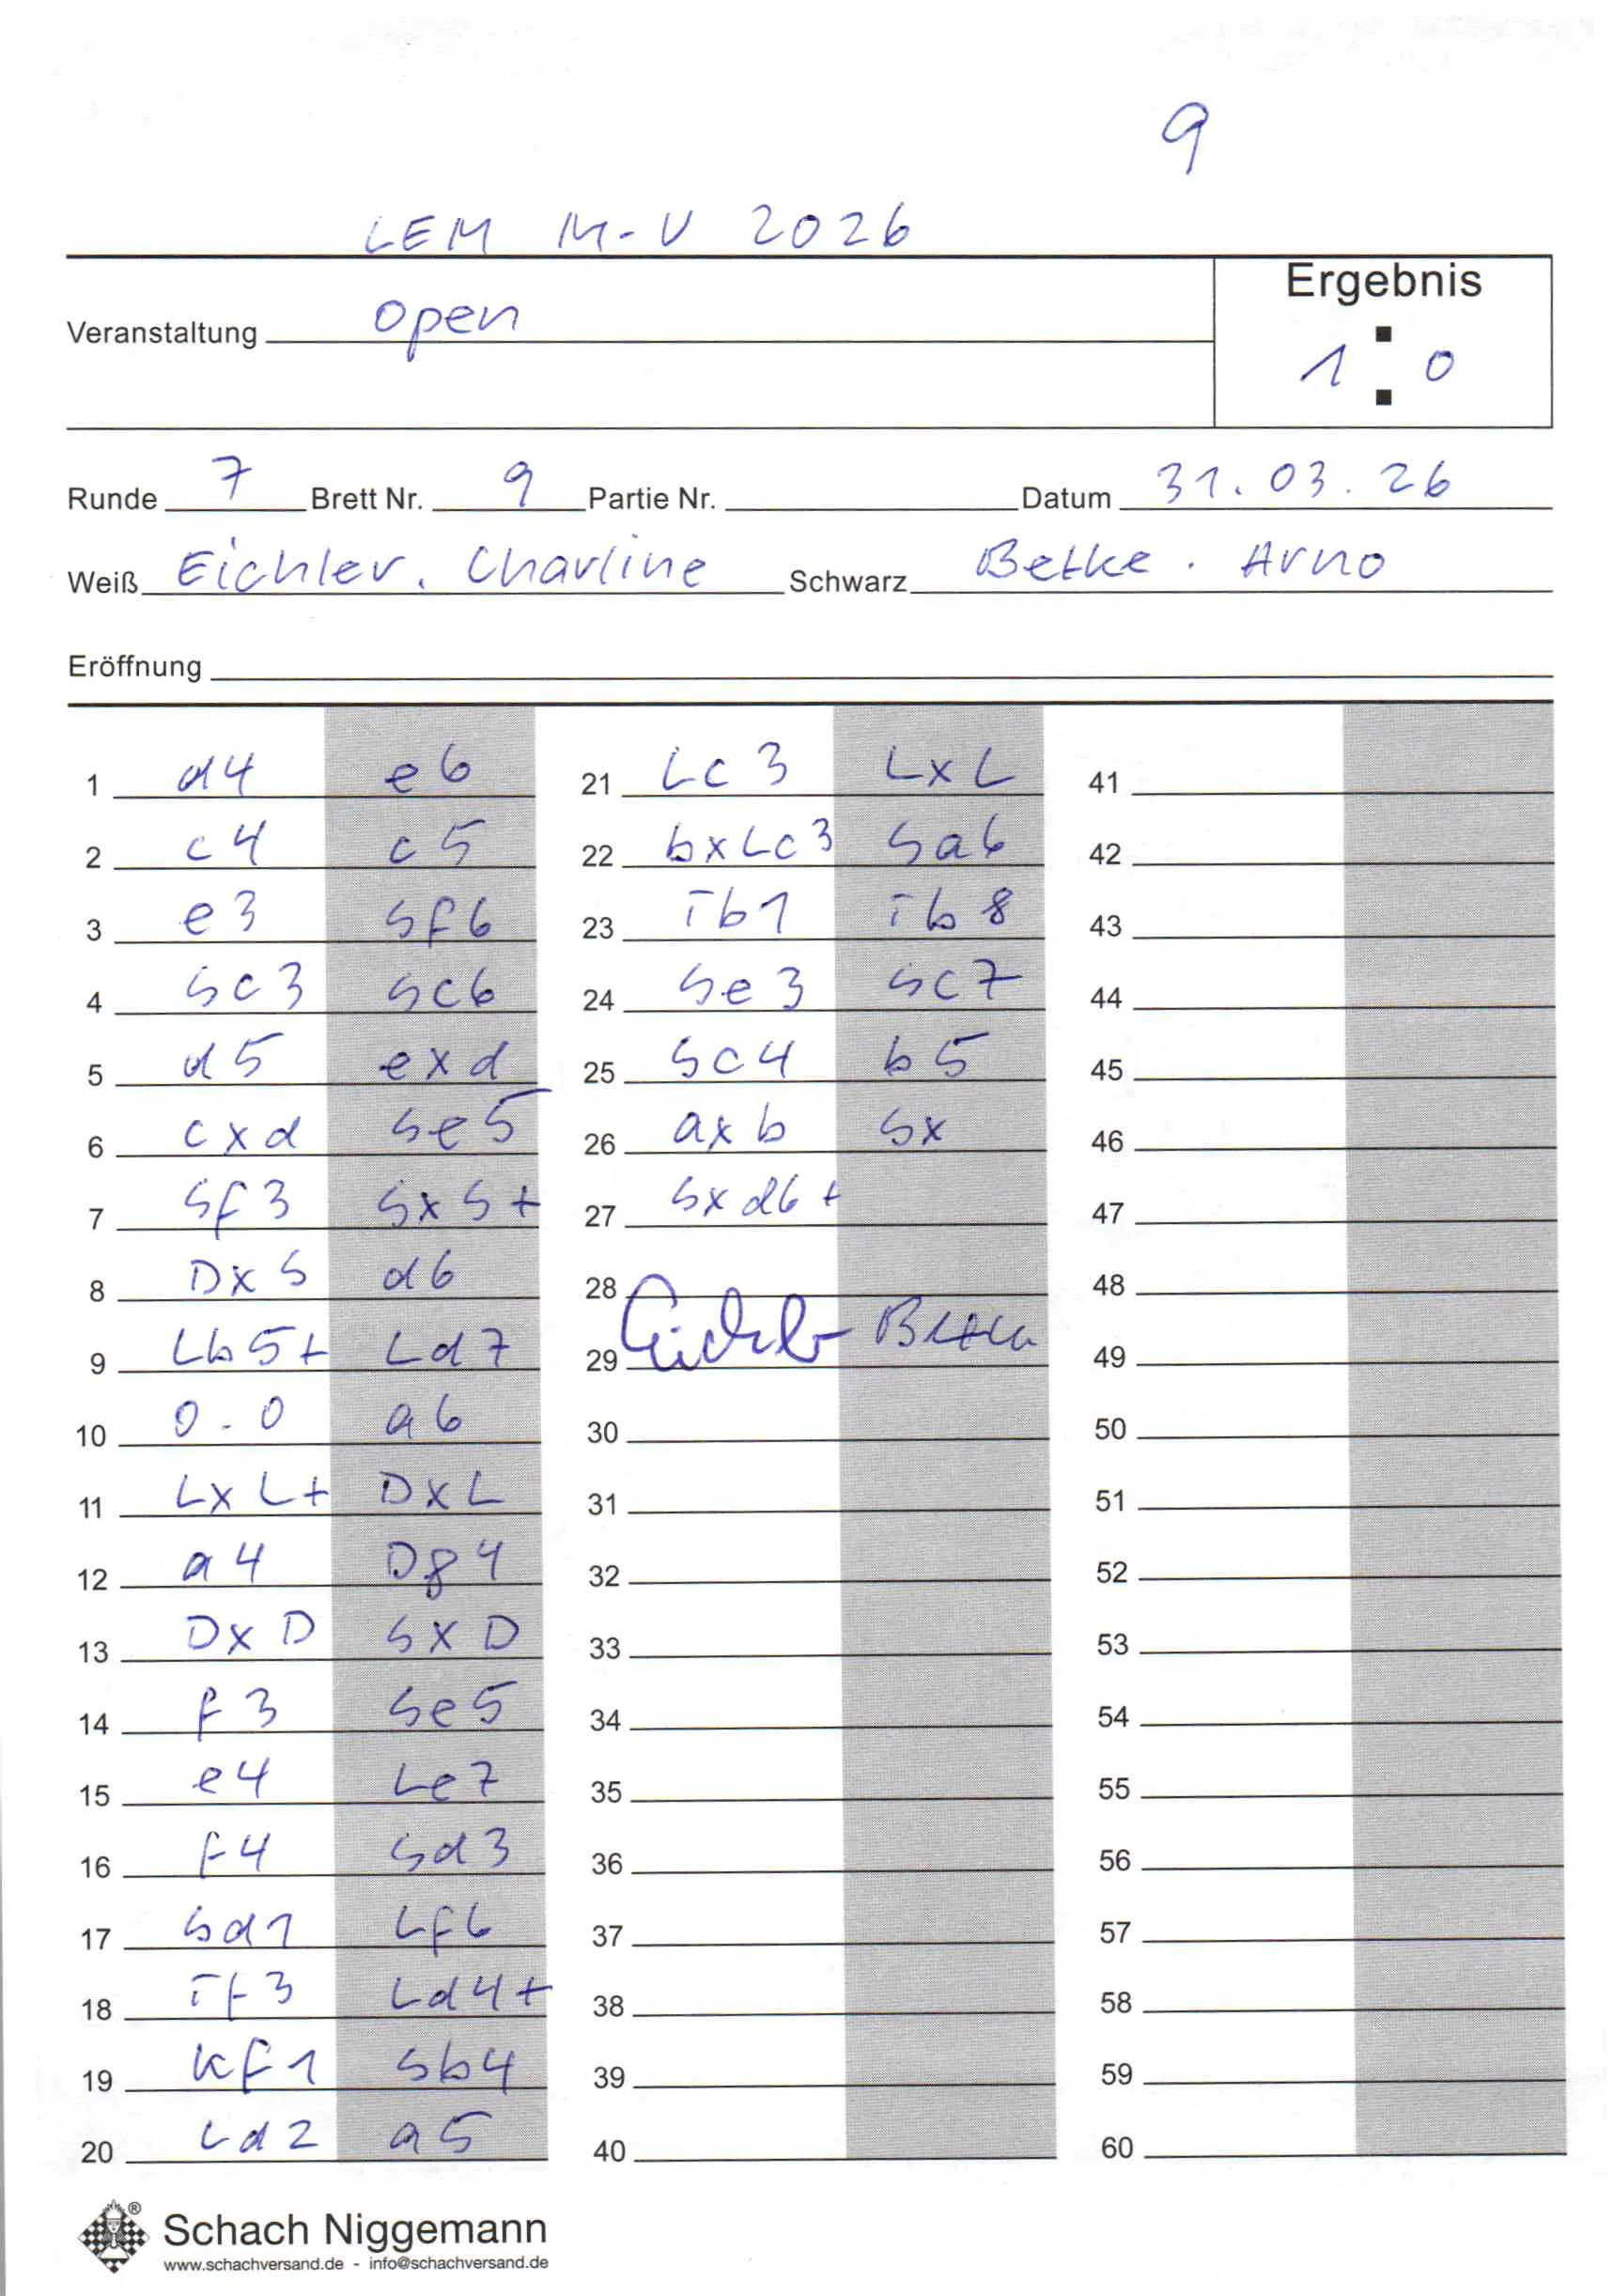 9
LEM M-V 2026
Veranstaltung Open
Ergebnis
1 : 0
Runde 7 Brett Nr. 9 Partie Nr. Datum 31.03.26
Weiß Eichler, Charline Schwarz Betke. Arno
Eröffnung
1 d4 e6
2 c4 c5
3 e3 Sf6
4 Sc3 Sc6
5 d5 exd
6 cxd Se5
7 Sf3 SxS+
8 DxS d6
9 Lb5+ Ld7
10 0-0 a6
11 LxL+ DxL
12 a4 Dg4
13 DxD SxD
14 f3 Se5
15 e4 Le7
16 f4 Sd3
17 Sd1 Lf6
18 Tf3 Ld4+
19 Kf1 Sb4
20 Ld2 a5
21 Lc3 LxL
22 bxLc3 Sa6
23 Tb1 Tb8
24 Se3 Sc7
25 Sc4 b5
26 axb Sx
27 Sxd6+
28
29 Eichler Betke
30
31
32
33
34
35
36
37
38
39
40
41
42
43
44
45
46
47
48
49
50
51
52
53
54
55
56
57
58
59
60
®
Schach Niggemann
www.schachversand.de - info@schachversand.de